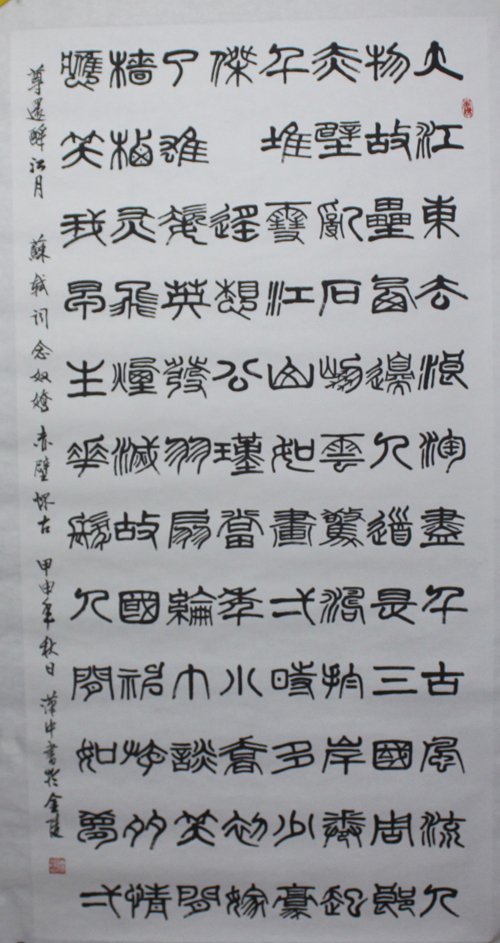 大江東去浪淘盡千古風流人
物故壘西邊人道是三國周郎
赤壁亂石崩雲驚濤拍岸卷起
千堆雪江山如畫弌時多少豪
傑 遥想公瑾當年小喬初嫁
了雄姿英發羽扇綸巾談笑間
檣櫓灰飛煙滅故國神遊多情
應笑我早生華髮人間如夢弌
尊還酹江月 蘇軾詞念奴嬌赤壁懷古 甲申年秋日 中書於金陵